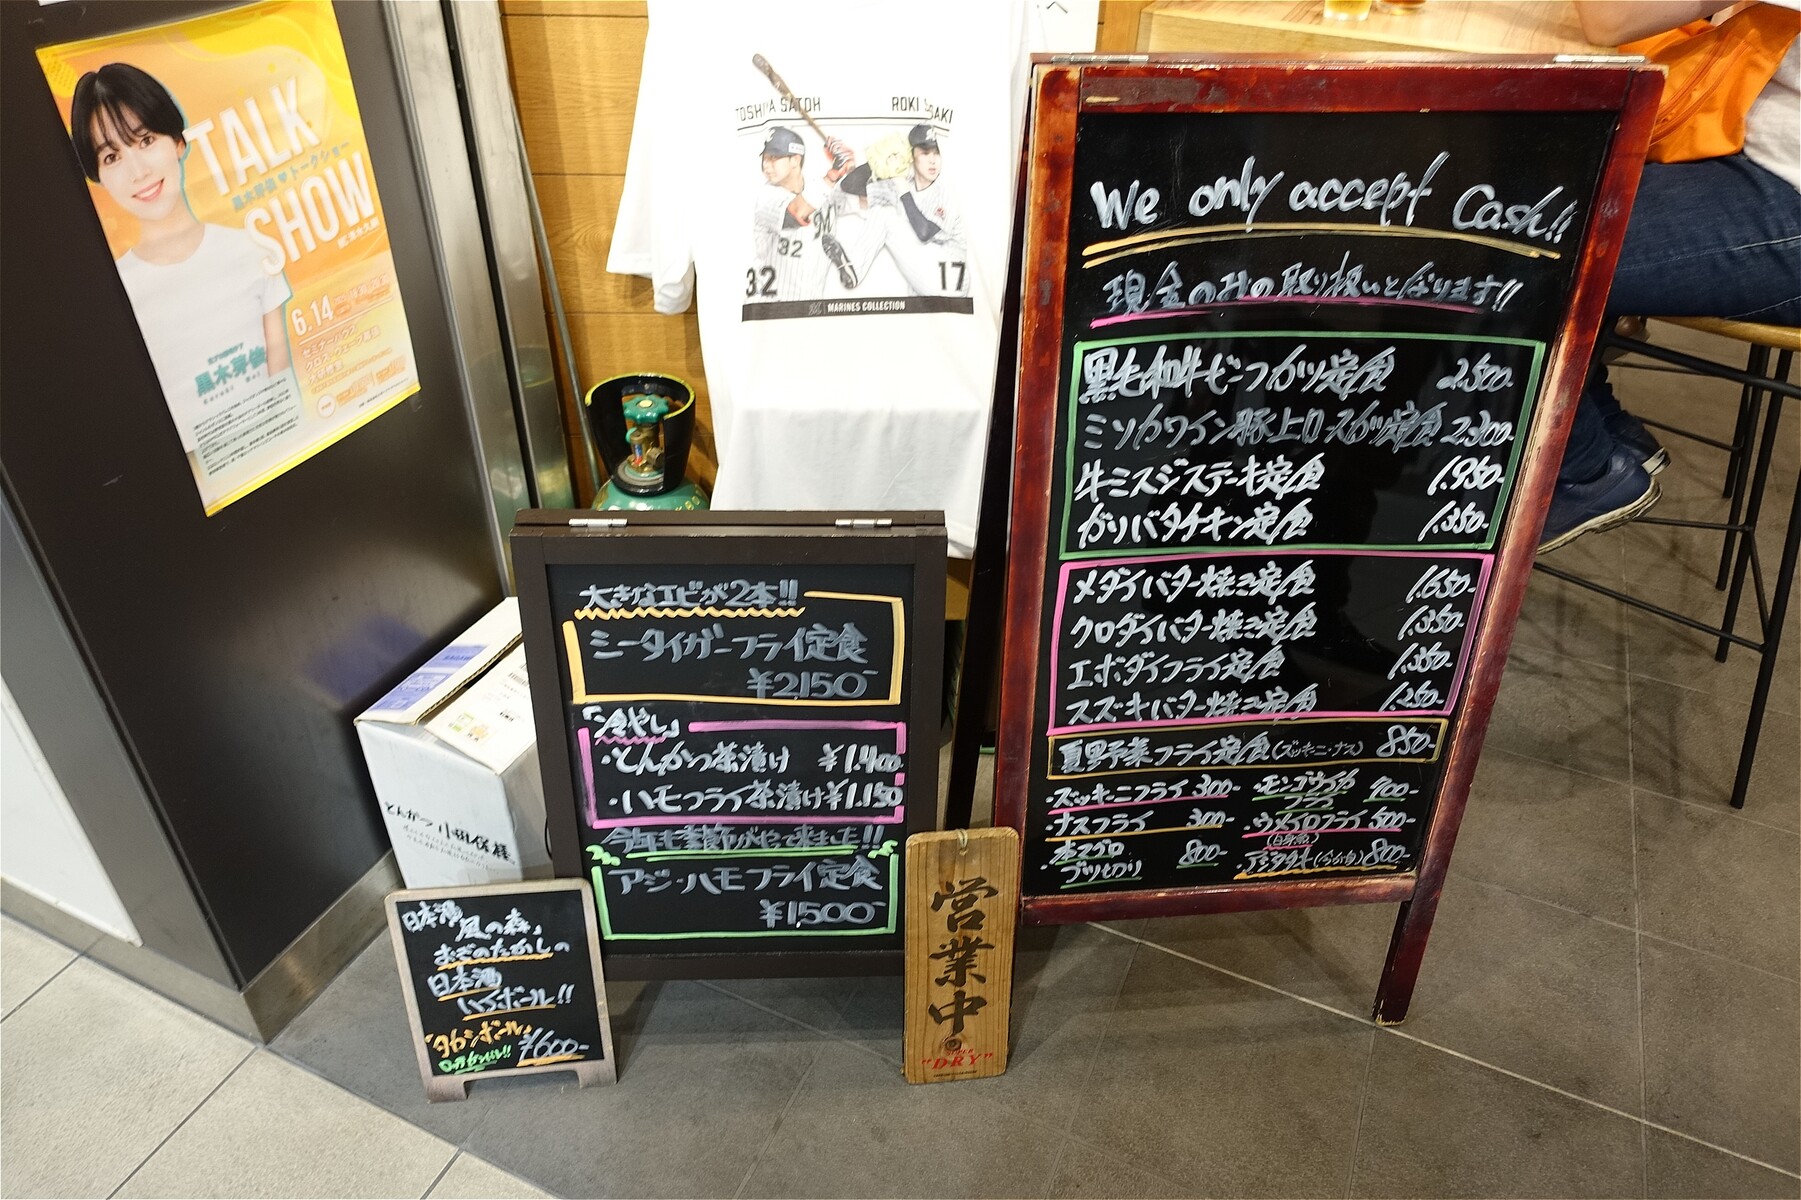 TALK
黒木芽依♥トークショー
SHOW
6.14
セミナーハウス
クロス・ウェーブ幕張
大研修室
黒木芽依
TOSHIYA SATOH
ROKI SASAKI
32
32
17
MARINES COLLECTION
We only accept Cash!!
現金のみの取り扱いとなります!!
黒毛和牛ビーフカツ定食 2.500-
ミソカワイン豚上ロースカツ定食 2.300-
牛ミスジステーキ定食 1.950-
ガリバタチキン定食 1.350-
メダイバター焼き定食 1.650-
クロダイバター焼き定食 1.350-
エボダイフライ定食 1.350-
スズキバター焼き定食 1.250-
夏野菜フライ定食(ズッキーニ・ナス) 850-
・ズッキーニフライ 300-
・モンゴウイカフライ 400-
・ナスフライ 300-
・ウメイロフライ 500-
(白身魚)
・本マグロブツセリ 800-
800-
大きなエビが2本!!
ミータイガーフライ定食
¥2,150-
「冷やし」
・とんかつ茶漬け ¥1.400
・ハモフライ茶漬け ¥1.150
今年も季節がやって来ました!!
アジ・ハモフライ定食
¥1,500-
とんかつ 小田保様
日本酒
「風の森」
日本酒
ハイボール!!
¥600-
営業中
"DRY"